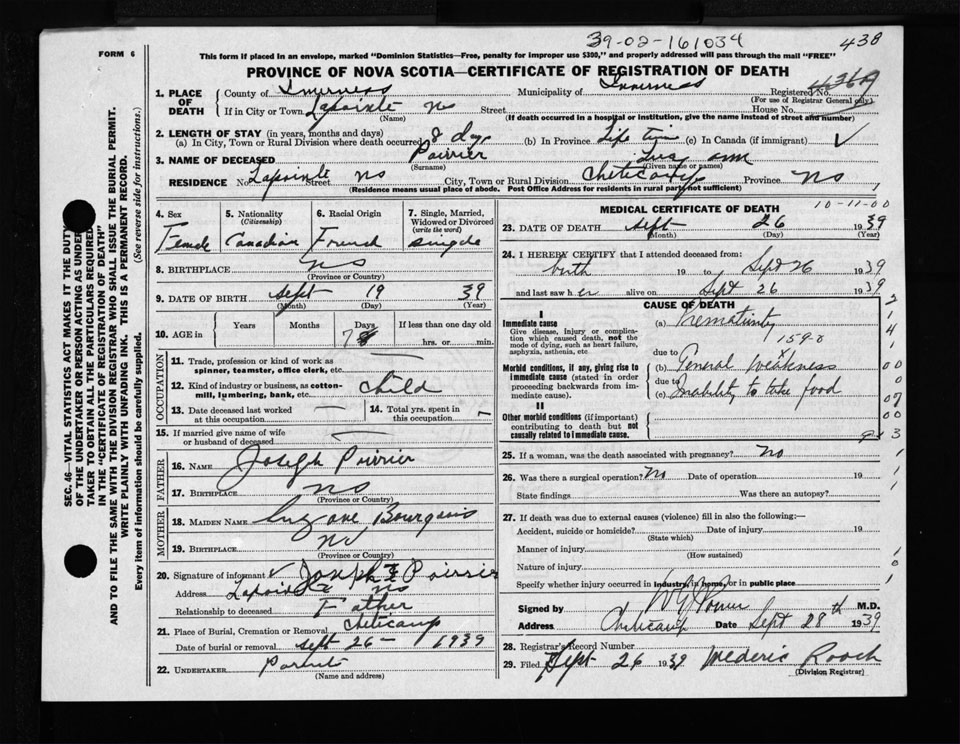 39-02-161034
438
FORM 6
This form if placed in an envelope, marked "Dominion Statistics—Free, penalty for improper use $300," and properly addressed will pass through the mail "FREE"
PROVINCE OF NOVA SCOTIA—CERTIFICATE OF REGISTRATION OF DEATH
1. PLACE OF DEATH County of Inverness Municipality of Inverness Registered No.
(For use of Registrar General only)
If in City or Town Lapointe NS Street House No.
(Name) (If death occurred in a hospital or institution, give the name instead of street and number)
2. LENGTH OF STAY (in years, months and days)
(a) In City, Town or Rural Division where death occurred 8 days (b) In Province Life time (c) In Canada (if immigrant)
3. NAME OF DECEASED Poirier ann
(Surname) (Given name or names)
RESIDENCE No. Lapointe Street NS City, Town or Rural Division Cheticamp Province NS
(Residence means usual place of abode. Post Office Address for residents in rural parts not sufficient)
4. Sex Female
5. Nationality (Citizenship) Canadian
6. Racial Origin French
7. Single, Married, Widowed or Divorced (write the word) single
8. BIRTHPLACE NS
(Province or Country)
9. DATE OF BIRTH Sept 19 39
(Month) (Day) (Year)
10. AGE in Years Months Days 7 If less than one day old
hrs. or min.
OCCUPATION
11. Trade, profession or kind of work as spinner, teamster, office clerk, etc.
12. Kind of industry or business, as cotton-mill, lumbering, bank, etc. child
13. Date deceased last worked at this occupation —
14. Total yrs. spent in this occupation —
15. If married give name of wife or husband of deceased —
FATHER
16. NAME Joseph Poirier
17. BIRTHPLACE NS
(Province or Country)
MOTHER
18. MAIDEN NAME Bourgeois
19. BIRTHPLACE NS
(Province or Country)
20. Signature of informant Joseph Poirier
Address Lapointe NS
Relationship to deceased Father
21. Place of Burial, Cremation or Removal Cheticamp
Date of burial or removal Sept 26 — 1939
22. UNDERTAKER
(Name and address)
MEDICAL CERTIFICATE OF DEATH
10-11-00
23. DATE OF DEATH Sept 26 1939
(Month) (Day) (Year)
24. I HEREBY CERTIFY that I attended deceased from:
birth 19 to Sept 26 1939
and last saw her alive on Sept 26 1939
CAUSE OF DEATH
I
Immediate cause
Give disease, injury or complication which caused death, not the mode of dying, such as heart failure, asphyxia, asthenia, etc.
(a) Prematurity
159-0
due to
Morbid conditions, if any, giving rise to immediate cause (stated in order proceeding backwards from immediate cause).
(b) General Weakness
due to
(c) Inability to take food
II
Other morbid conditions (if important) contributing to death but not causally related to immediate cause.
25. If a woman, was the death associated with pregnancy? No
26. Was there a surgical operation? No Date of operation 19
State findings Was there an autopsy?
27. If death was due to external causes (violence) fill in also the following:—
Accident, suicide or homicide? Date of injury 19
(State which)
Manner of injury
(How sustained)
Nature of injury
Specify whether injury occurred in industry, in home, or in public place
Signed by M.D.
Address Cheticamp Date Sept 28th 1939
28. Registrar's Record Number
29. Filed Sept 26 1939 Mederic Roach
(Division Registrar)
SEC. 46—VITAL STATISTICS ACT MAKES IT THE DUTY
OF THE UNDERTAKER OR PERSON ACTING AS UNDER-
TAKER TO OBTAIN ALL THE PARTICULARS REQUIRED
IN THE "CERTIFICATE OF REGISTRATION OF DEATH"
AND TO FILE THE SAME WITH THE DIVISION REGISTRAR WHO SHALL ISSUE THE BURIAL PERMIT.
WRITE PLAINLY WITH UNFADING INK. THIS IS A PERMANENT RECORD.
Every item of information should be carefully supplied. (See reverse side for instructions.)